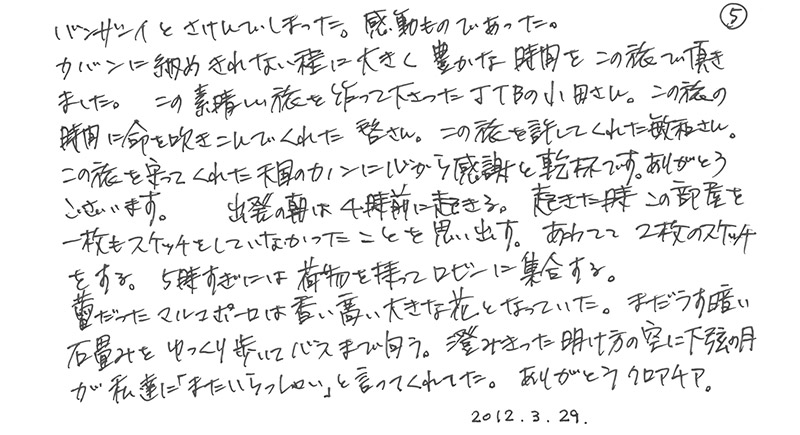 ⑤
バンザイとさけんでしまった。感動ものであった。
カバンに納めきれない程に大きく豊かな時間をこの旅で頂き
ました。 この素晴しい旅を作って下さったJTBの小田さん。この旅の
時間に命を吹きこんでくれた 啓さん。この旅を許してくれた敏和さん。
この旅を守ってくれた天国のカノンに心から感謝と乾杯です。ありがとう
ございます。 出発の朝は4時前に起きる。 起きた時この部屋を
一枚もスケッチをしていなかったことを思い出す。 あわてて2枚のスケッチ
をする。 5時すぎには荷物を持ってロビーに集合する。
蕾だったマルコポーロは香い高い大きな花となっていた。まだうす暗い
石畳みをゆっくり歩いてバスまで向う。澄みきった明け方の空に下弦の月
が私達に「またいらっしゃい」と言ってくれてた。ありがとうクロアチア。
2012.3.29.